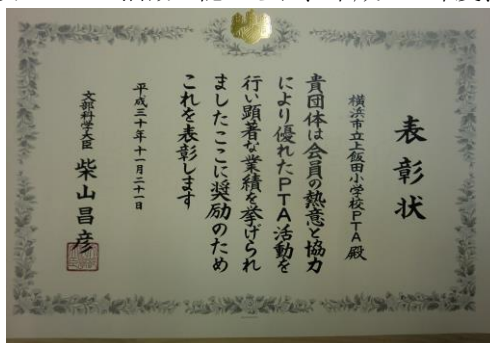 表彰状
横浜市立上飯田小学校PTA殿
貴団体は会員の熱意と協力
により優れたPTA活動を
行い顕著な業績を挙げられ
ましたここに奨励のため
これを表彰します
平成三十年十一月二十一日
文部科学大臣 柴山昌彦